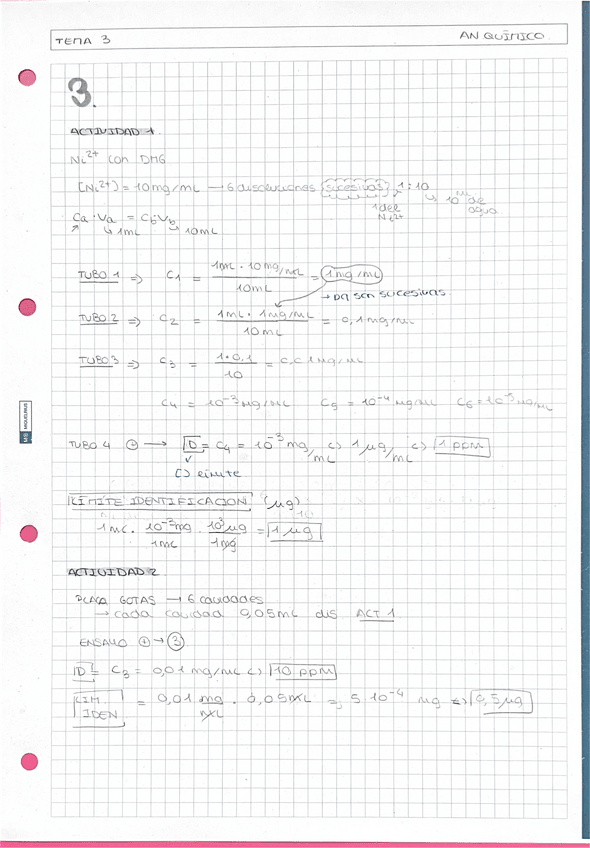 TEMA 3 AN QUÍMICO
3.
ACTIVIDAD 1
Ni²⁺ con DMG
[Ni²⁺] = 10 mg/mL → 6 disoluciones (sucesivas) 1:10
1 del Ni²⁺ ↳ 10 mL de agua
Ca · Va = Cb Vb
↗ ↳ 1mL ↳ 10mL
TUBO 1 ⇒ C1 = 1mL · 10 mg/mL / 10mL = 1 mg/mL
→ pq son sucesivas
TUBO 2 ⇒ C2 = 1mL · 1mg/mL / 10mL = 0,1 mg/mL
TUBO 3 ⇒ C3 = 1 · 0,1 / 10 = 0,01 mg/mL
C4 = 10⁻³ mg/mL C5 = 10⁻⁴ mg/mL C6 = 10⁻⁵ mg/mL
TUBO 4 ⊕ → D = C4 = 10⁻³ mg/mL <> 1 µg/mL <> 1 ppm
[] límite
LÍMITE IDENTIFICACION (µg)
1mL · 10⁻³mg / 1mL · 10³µg / 1mg = 1 µg
ACTIVIDAD 2
PLACA GOTAS → 6 cavidades
→ cada cavidad 0,05mL dis ACT 1
ENSAYO ⊕ → 3
D = C3 = 0,01 mg/mL <> 10 ppm
LIM. IDEN = 0,01 mg/mL · 0,05mL = 5 10⁻⁴ mg <=> 0,5µg
MIQUELRIUS